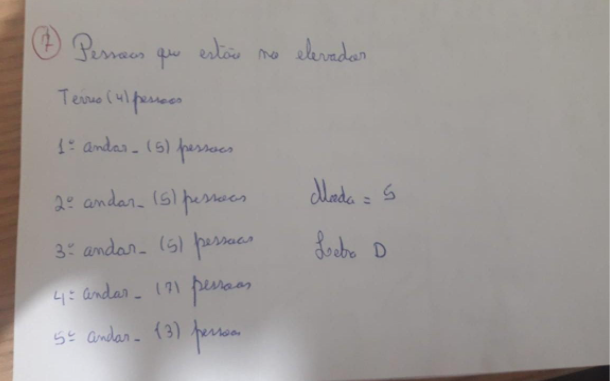 7 Pessoas que estão no elevador
Terreo (4) pessoas
1º andar - (5) pessoas
2º andar - (5) pessoas
Moda = 5
3º andar - (5) pessoas
Letra D
4º andar - (7) pessoas
5º andar - (3) pessoas